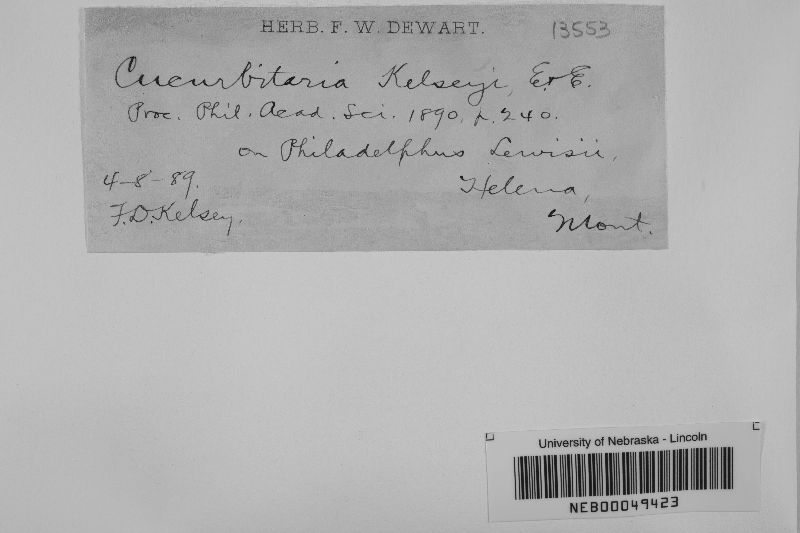 HERB. F. W. DEWART. 13553
Cucurbitaria Kelseyi, E. & E.
Proc. Phil. Acad. Sci. 1890, p. 240.
on Philadelphus Lewisii,
4-8-89. Helena,
F.D. Kelsey, Mont.
University of Nebraska - Lincoln
NEB00049423